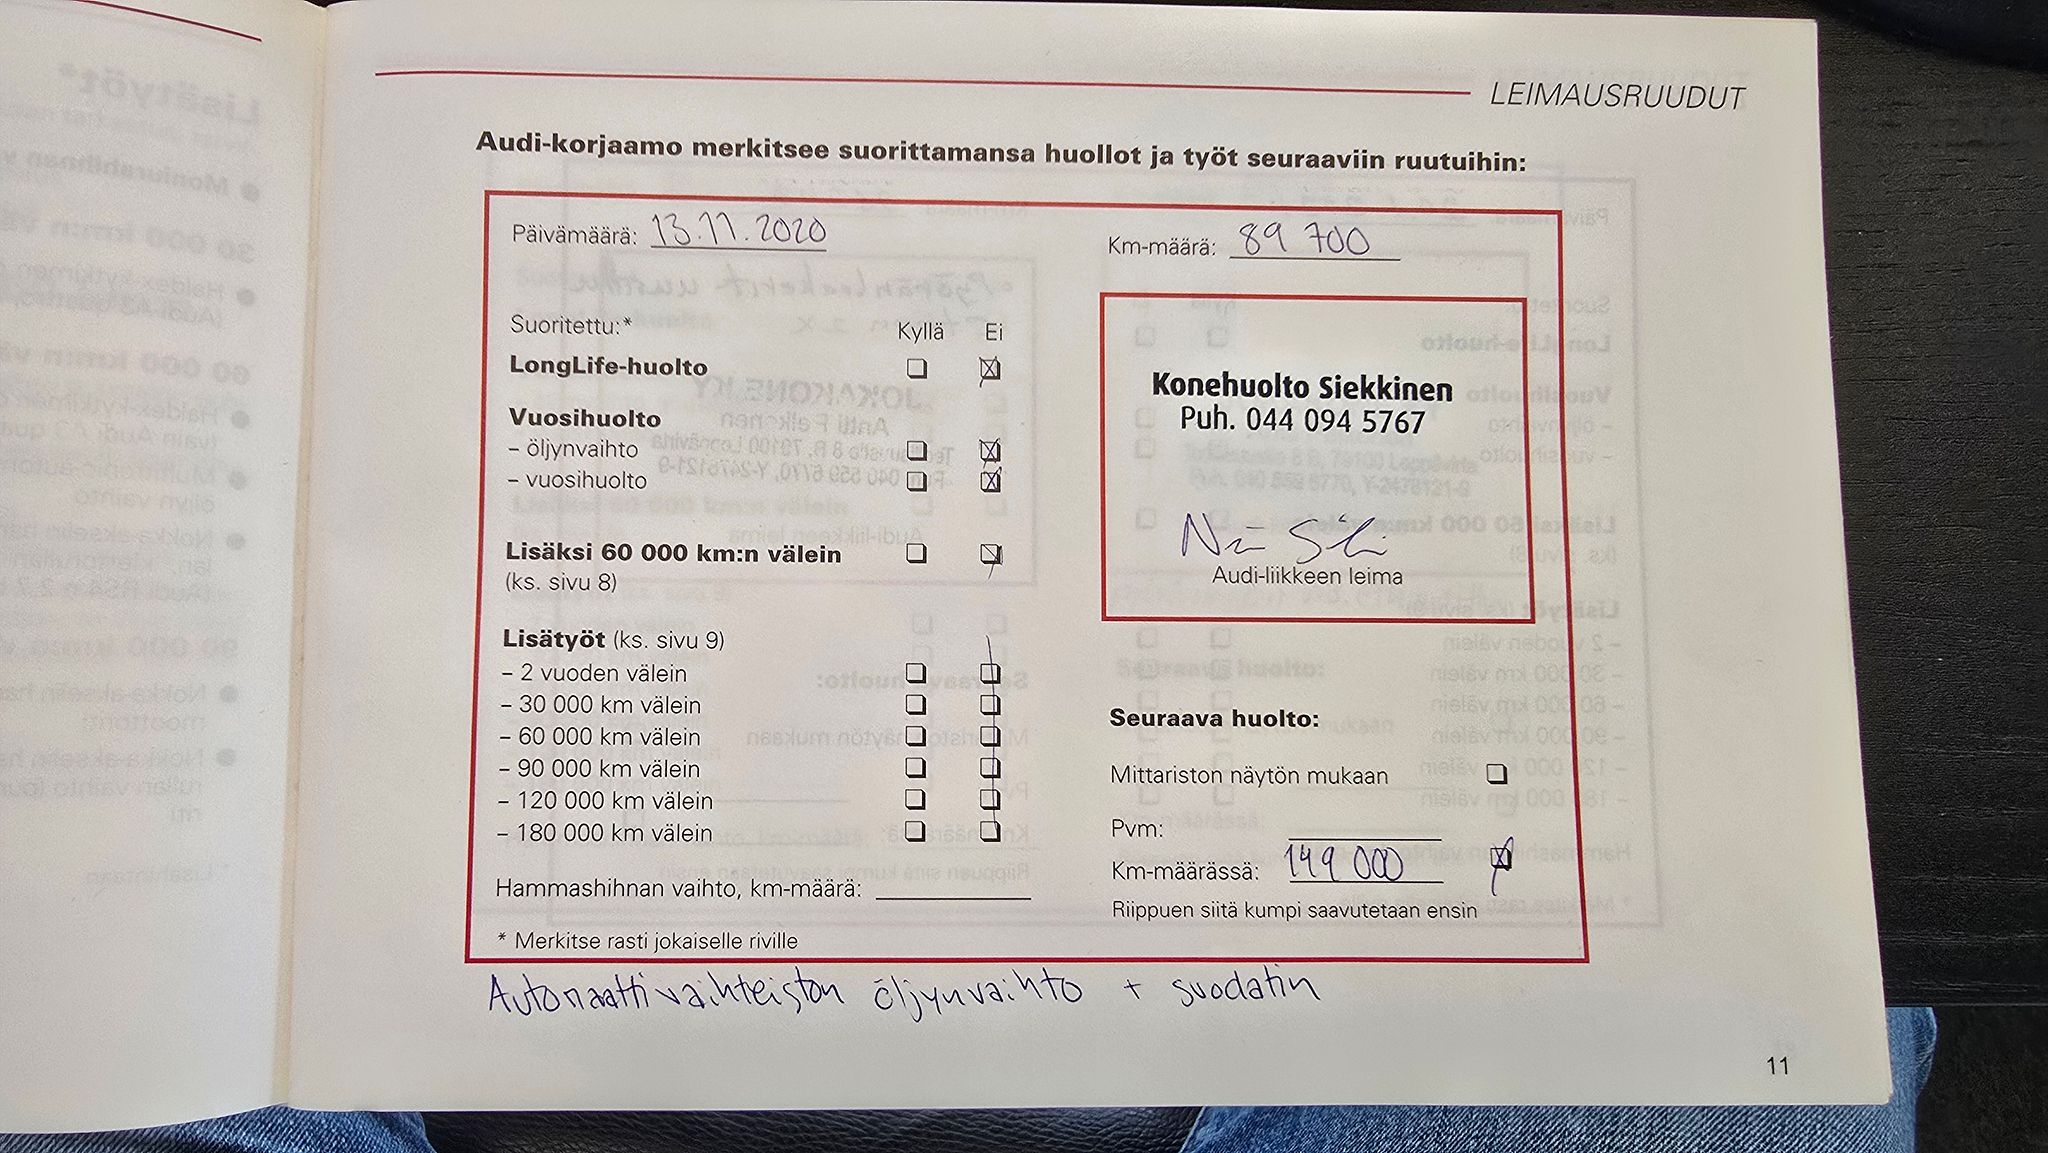 LEIMAUSRUUDUT
Audi-korjaamo merkitsee suorittamansa huollot ja työt seuraaviin ruutuihin:
Päivämäärä: 13.11.2020
Km-määrä: 89 700
Suoritettu:* Kyllä Ei
LongLife-huolto
Vuosihuolto
– öljynvaihto
– vuosihuolto
Lisäksi 60 000 km:n välein
(ks. sivu 8)
Lisätyöt (ks. sivu 9)
– 2 vuoden välein
– 30 000 km välein
– 60 000 km välein
– 90 000 km välein
– 120 000 km välein
– 180 000 km välein
Hammashihnan vaihto, km-määrä:
* Merkitse rasti jokaiselle riville
Konehuolto Siekkinen
Puh. 044 094 5767
Audi-liikkeen leima
Seuraava huolto:
Mittariston näytön mukaan
Pvm:
Km-määrässä: 149 000
Riippuen siitä kumpi saavutetaan ensin
Automaattivaihteiston öljynvaihto + suodatin
11